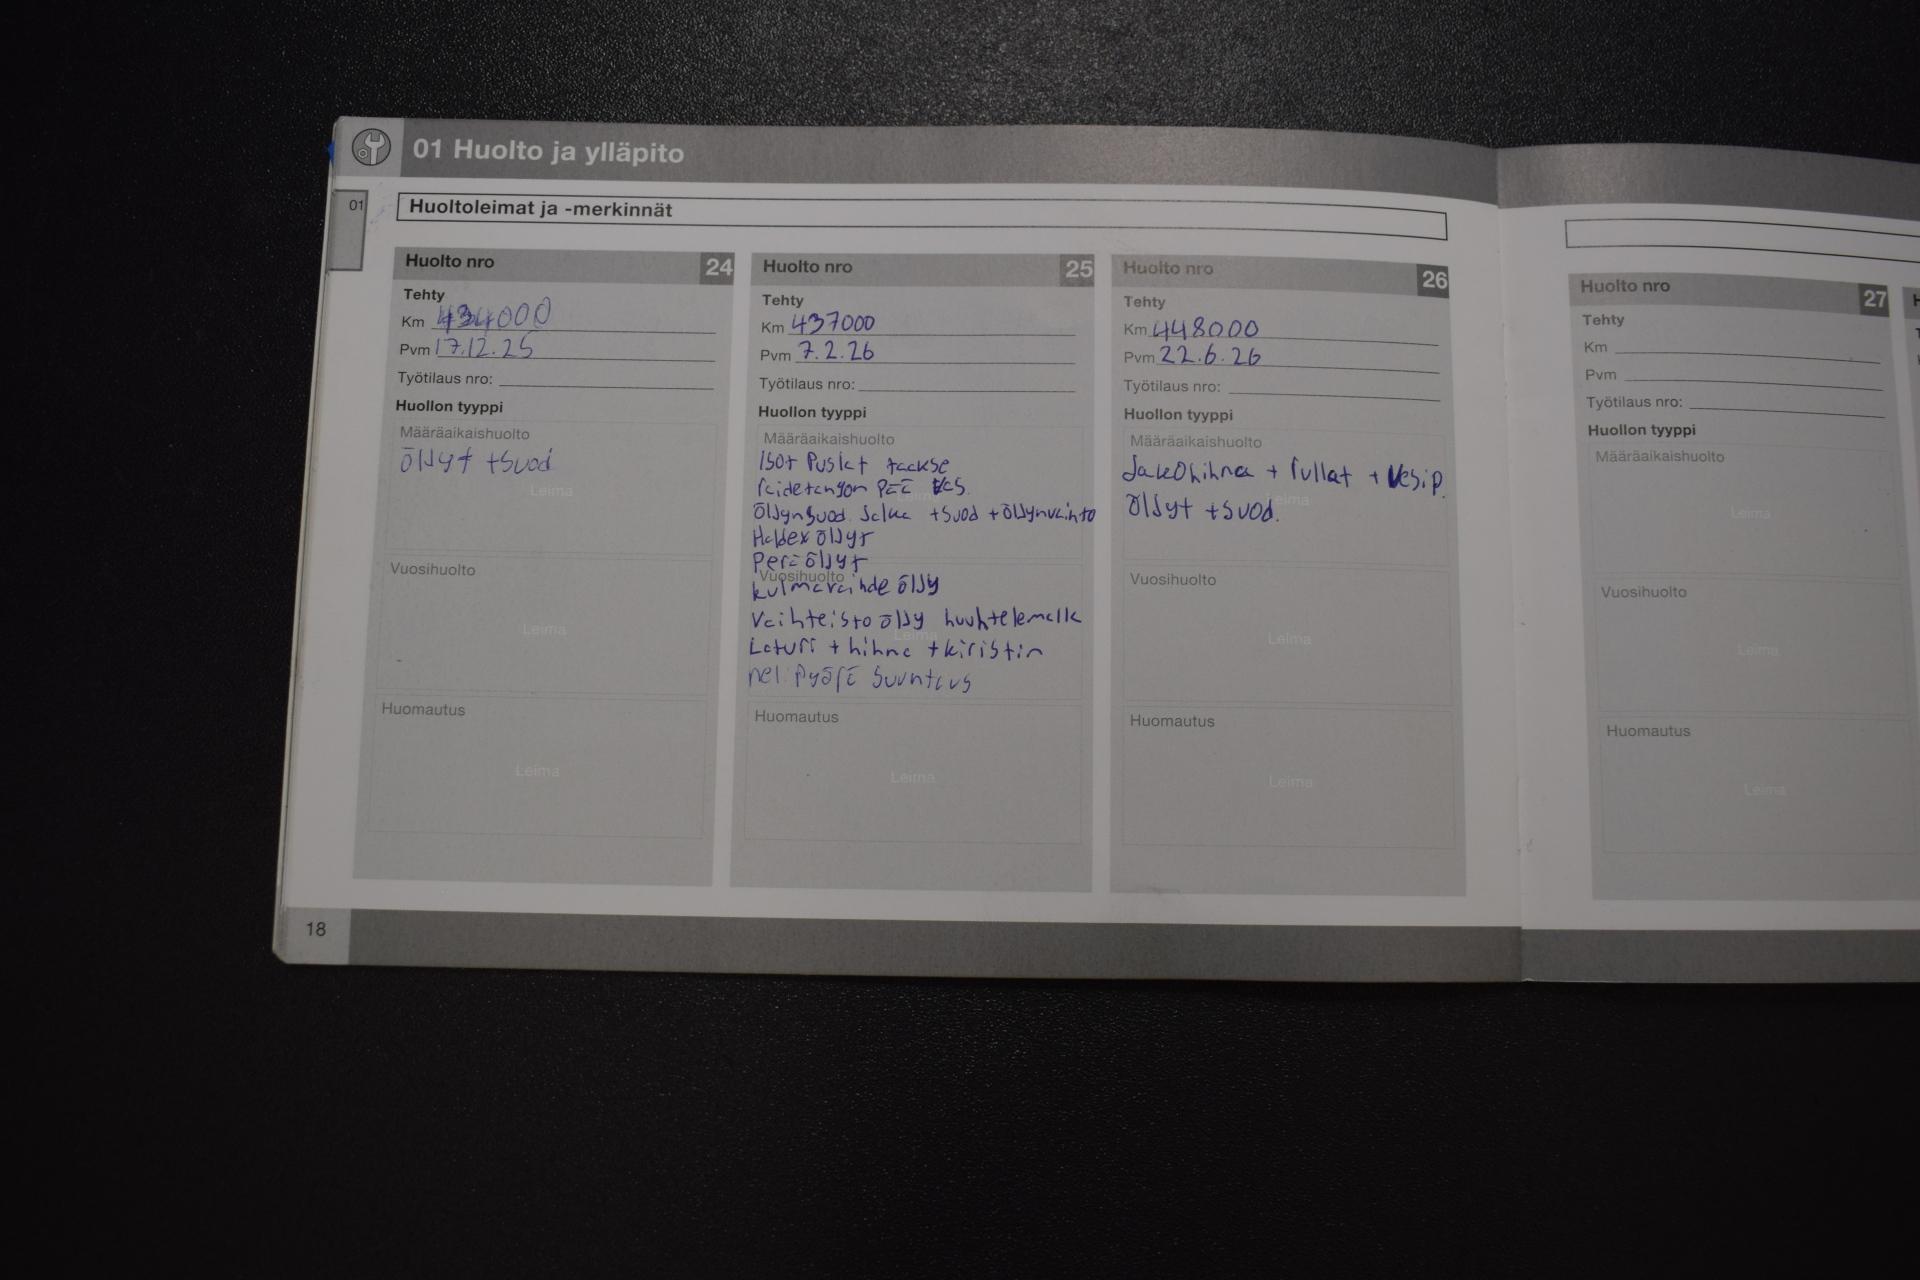 01 Huolto ja ylläpito
01
Huoltoleimat ja -merkinnät
Huolto nro 24
Tehty
Km 434000
Pvm 17.12.25
Työtilaus nro:
Huollon tyyppi
Määräaikaishuolto
öljyt + suod
Leima
Vuosihuolto
Leima
Huomautus
Leima
Huolto nro 25
Tehty
Km 437000
Pvm 7.2.26
Työtilaus nro:
Huollon tyyppi
Määräaikaishuolto
isot Puslat taakse
raidetangon pää vas.
Leima
öljynsuod. Jalka + suod + öljynvaihto
Haldex öljyt
Perä öljyt
Vuosihuolto
kulmavaihde öljy
Vaihteisto öljy huuhtelemalla
Leima
Laturi + hihna + kiristin
nel. Pyörä suuntaus
Huomautus
Leima
Huolto nro 26
Tehty
Km 448000
Pvm 22.6.26
Työtilaus nro:
Huollon tyyppi
Määräaikaishuolto
Jakohihna + rullat + Vesip.
Leima
Öljyt + suod.
Vuosihuolto
Leima
Huomautus
Leima
Huolto nro 27
Tehty
Km
Pvm
Työtilaus nro:
Huollon tyyppi
Määräaikaishuolto
Leima
Vuosihuolto
Leima
Huomautus
Leima
18